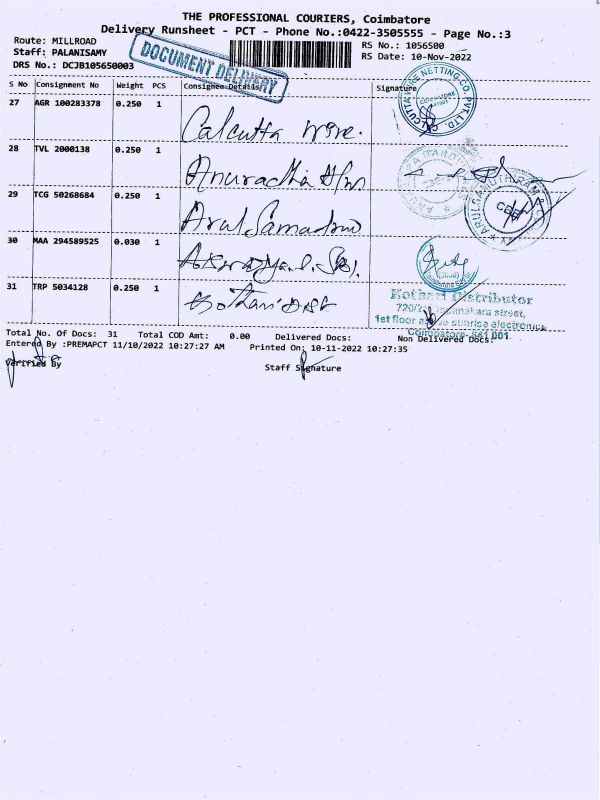 THE PROFESSIONAL COURIERS, Coimbatore
Delivery Runsheet - PCT - Phone No.:0422-3505555 - Page No.:3
Route: MILLROAD
RS No.: 1056500
Staff: PALANISAMY
RS Date: 10-Nov-2022
DRS No.: DCJB105650003
DOCUMENT DELIVERY
S No Consignment No Weight PCS Consignee Details Signature
27 AGR 100283378 0.250 1
Calcutta wire.
CALCUTTA WIRE NETTING CO. PVT. LTD.
COIMBATORE
28 TVL 2000138 0.250 1
Anuradha
29 TCG 50268684 0.250 1
Arul
30 MAA 294589525 0.030 1
31 TRP 5034128 0.250 1
Kothari Dist
Kothari Distributor
street,
1st floor above sunrise electronics
Coimbatore-641 001.
Total No. Of Docs: 31 Total COD Amt: 0.00 Delivered Docs: Non Delivered Docs:
Entered By :PREMAPCT 11/10/2022 10:27:27 AM Printed On: 10-11-2022 10:27:35
Verified By
Staff Signature